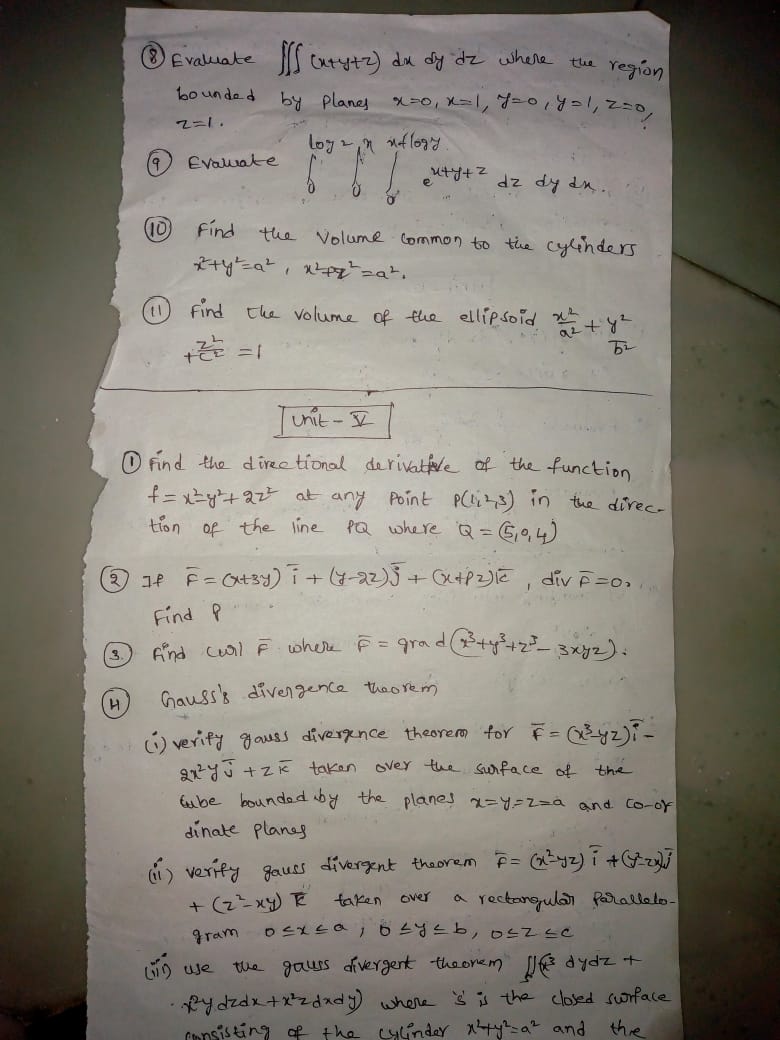 ⑧ Evaluate ∭ (x+y+z) dx dy dz where the region
bounded by planes x=0, x=1, y=0, y=1, z=0,
z=1.
⑨ Evaluate ∫₀^{log 2} ∫₀^{x} ∫₀^{x+logy} e^{x+y+z} dz dy dx.
⑩ Find the Volume common to the cylinders
x²+y²=a², x²+z²=a².
⑪ Find the volume of the ellipsoid x²/a² + y²/b²
+ z²/c² = 1
Unit - V
① Find the directional derivative of the function
f = x²-y²+2z² at any point P(1,2,3) in the direc-
tion of the line PQ where Q = (5,0,4)
② If F̄ = (x+3y) ī + (y-2z) j̄ + (x+pz) k̄, div F̄ = 0,
Find P
③. Find curl F̄ where F̄ = grad (x³+y³+z³-3xyz).
④ Gauss's divergence theorem
(i) verify gauss divergence theorem for F̄ = (x³-yz) ī -
2x²y j̄ + z k̄ taken over the surface of the
cube bounded by the planes x=y=z=a and co-or
dinate planes
(ii) verify gauss divergent theorem F̄ = (x²-yz) ī + (y²-zx) j̄
+ (z²-xy) k̄ taken over a rectangular parallelo-
gram 0≤x≤a, 0≤y≤b, 0≤z≤c
(iii) use the gauss divergent theorem ∬(x³ dydz +
x²y dzdx + x²z dxdy) where 's' is the closed surface
consisting of the cylinder x²+y²=a² and the